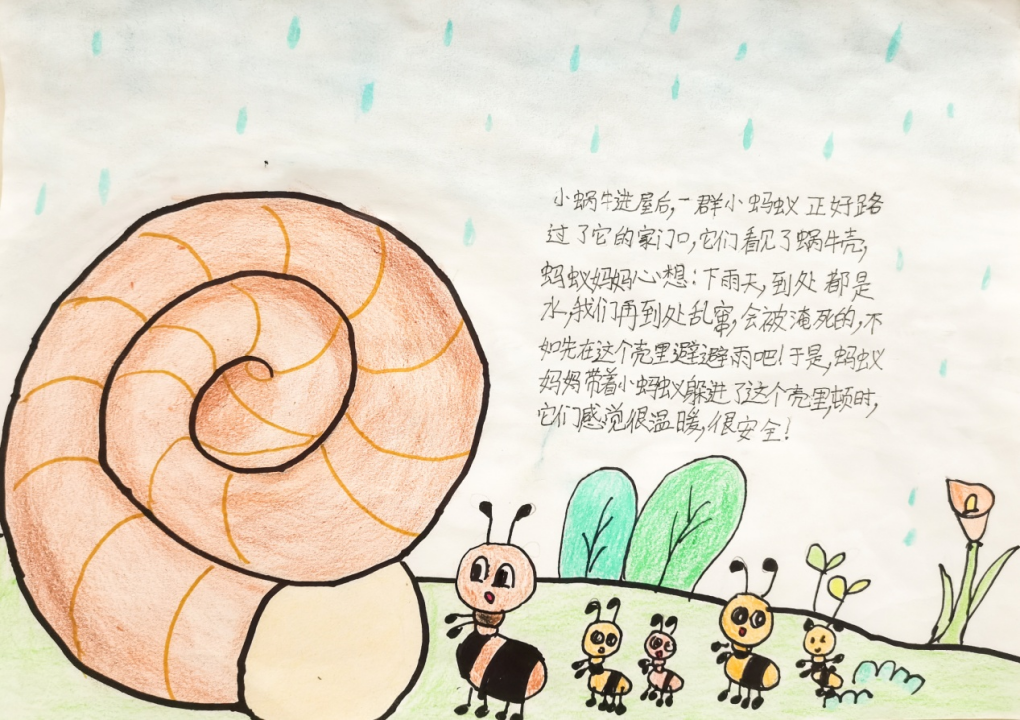 小蜗牛进屋后,一群小蚂蚁正好路
过了它的家门口,它们看见了蜗牛壳,
蚂蚁妈妈心想:下雨天,到处都是
水,我们再到处乱窜,会被淹死的,不
如先在这个壳里避避雨吧!于是,蚂蚁
妈妈带着小蚂蚁躲进了这个壳里顿时,
它们感觉很温暖,很安全!